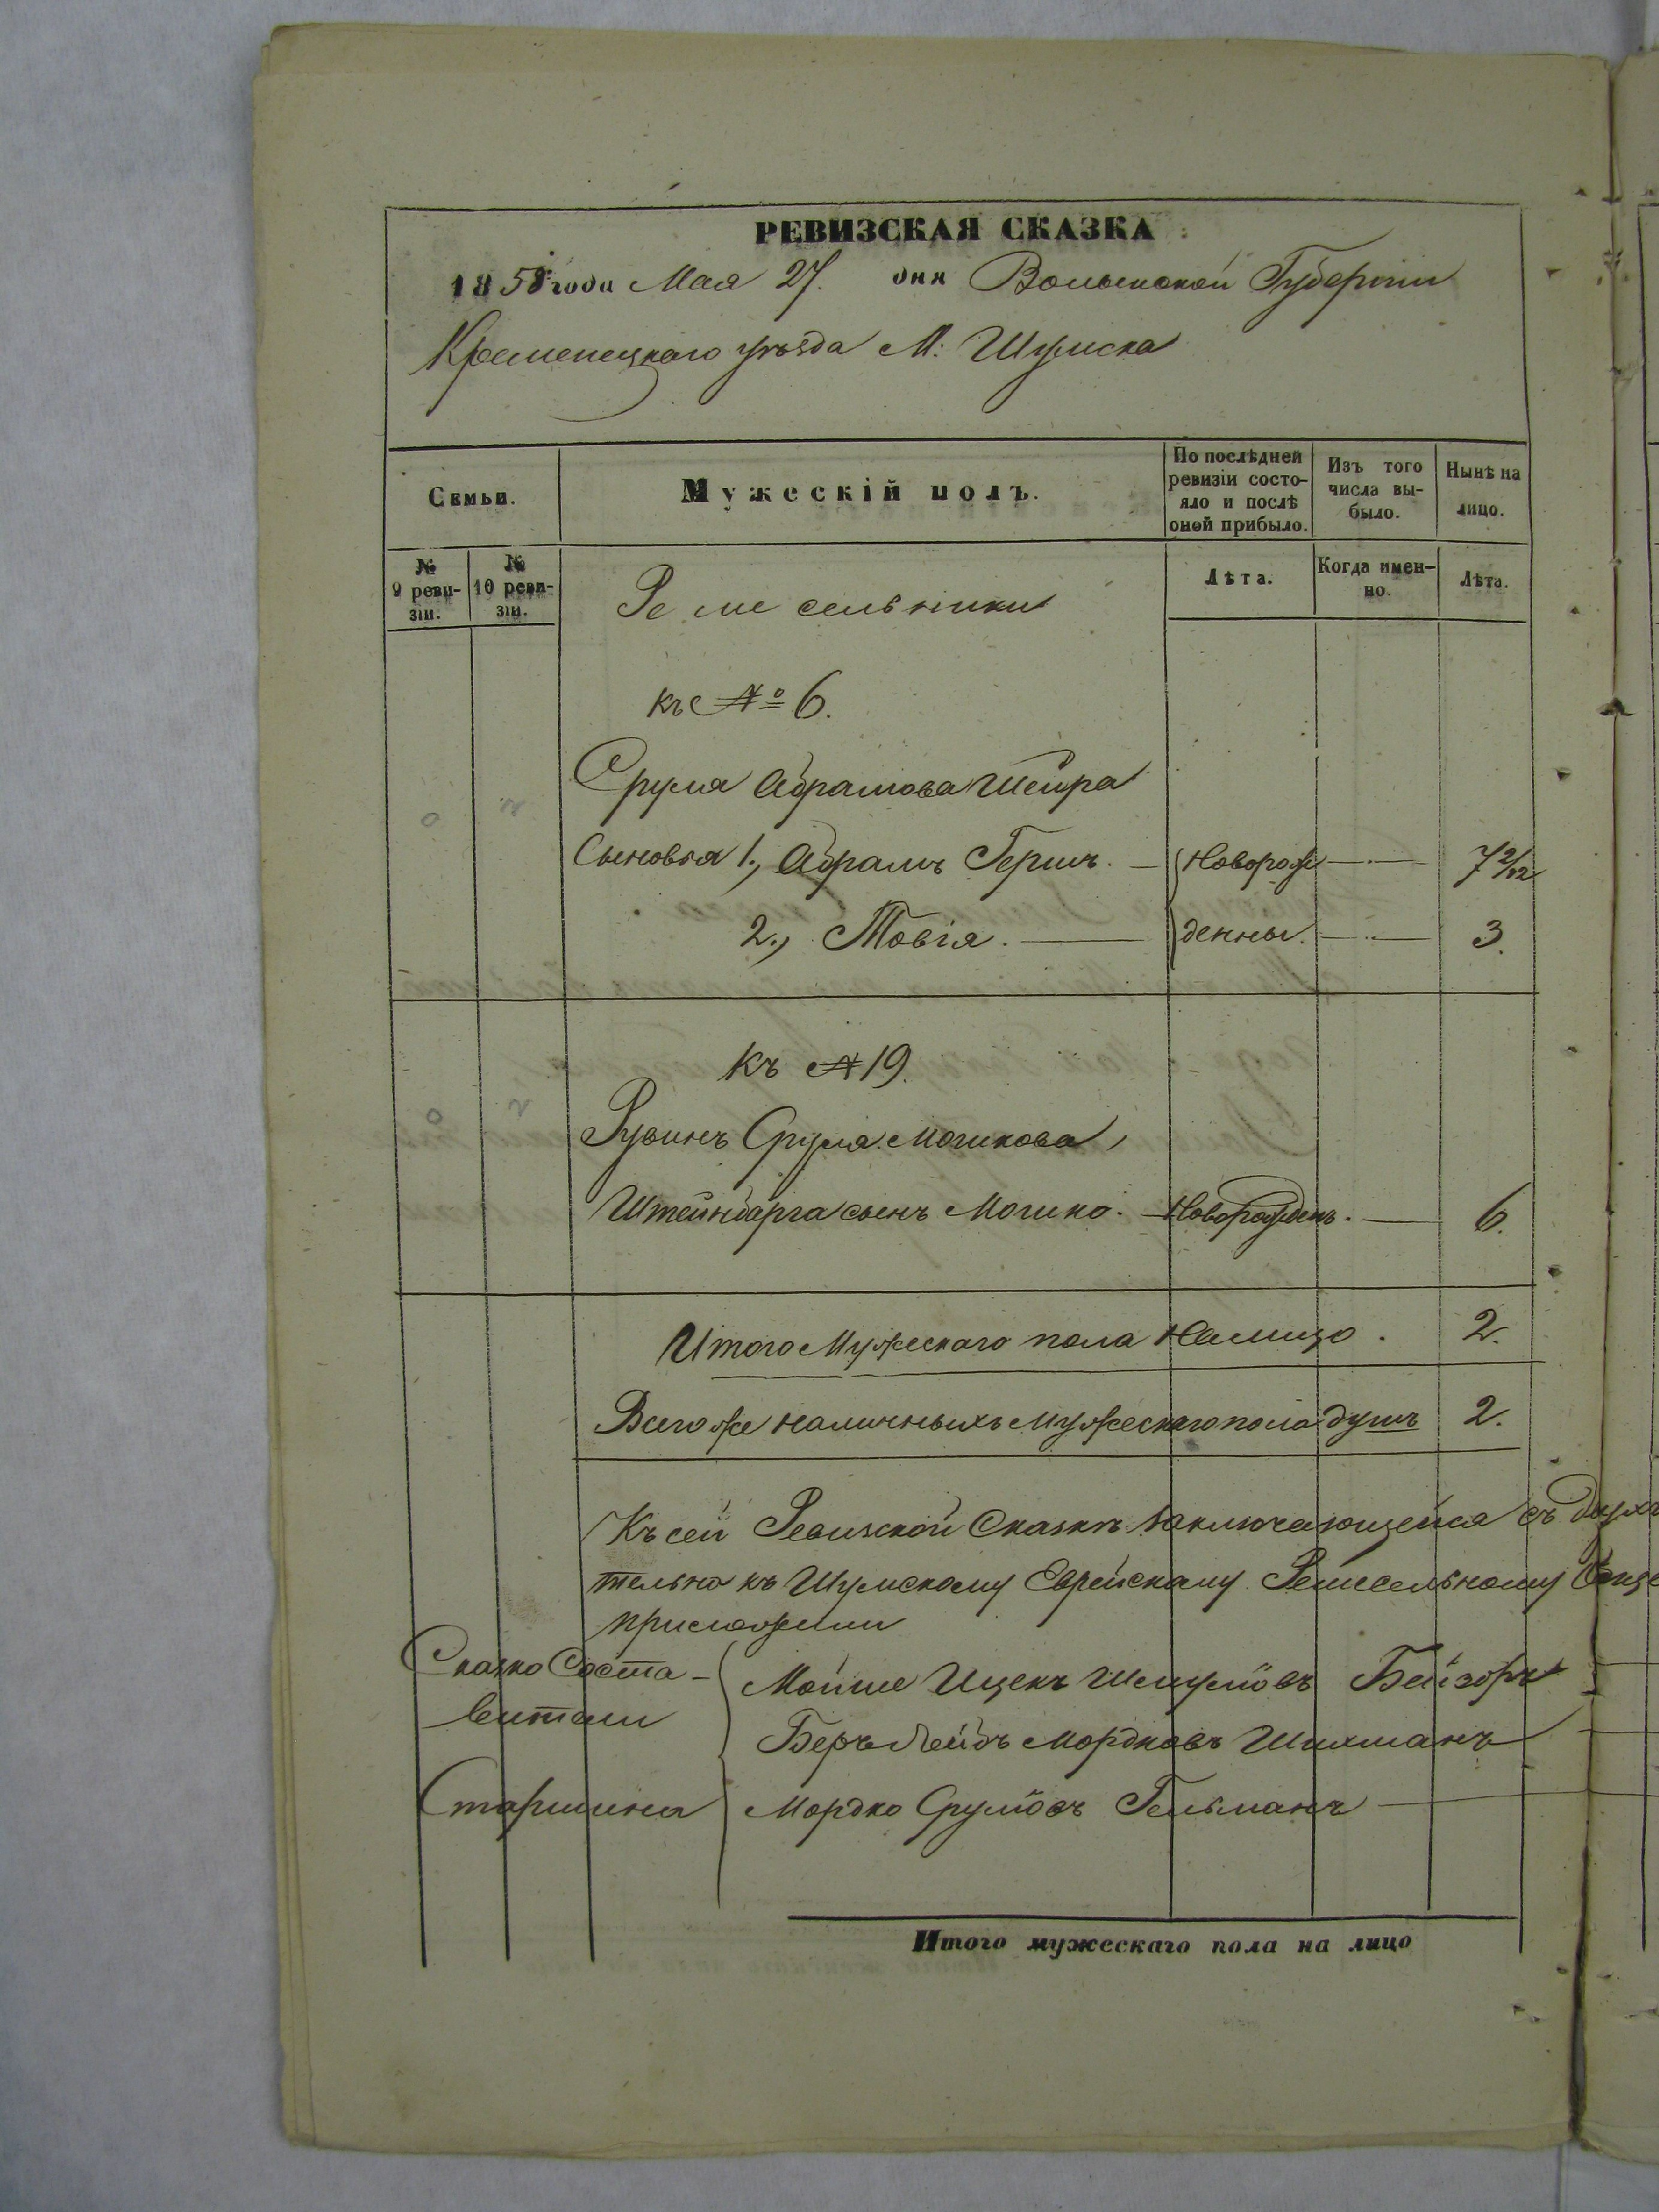 РЕВИЗСКАЯ СКАЗКА
1858 года Мая 27. дня Волынской Губерніи
Кременецкаго уѣзда М. Шумска
Семьи.
Мужескій полъ.
По послѣдней ревизіи состо-
яло и послѣ
оной прибыло.
Изъ того
числа вы-
было.
Нынѣ на
лицо.
№
9 реви-
зіи.
№
10 реви-
зіи.
Ремесельники
Лѣта.
Когда имен-
но.
Лѣта.
къ № 6.
Сруля Абрамова Шейра
Сыновья 1., Абрамъ Гершъ. — Новорож — 7 2/12
2., Товія. — денны. — 3.
Къ № 19.
Рувинъ Сруля Мошкова,
Штейнбарга сынъ Мошко. — Новорожденъ. — 6.
Итого Мужескаго пола Налицо. 2.
Всего же наличныхъ мужескаго пола душъ 2.
Къ сей Ревизской Сказкѣ заключающейся въ двухъ
тельно къ Шумскому Еврейскому Ремесельному
приложили
Сказко Соста-
вители
Мойше Ицекъ Шмулiовъ
Беръ Лейбъ Мордковъ Шихманъ
Старшина Мордко Сруліовъ Гельманъ
Итого мужескаго пола на лицо